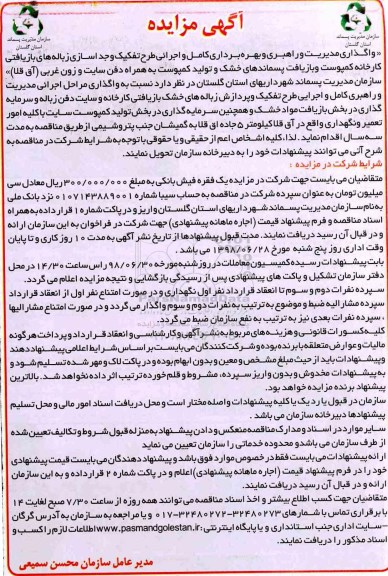 آگهی مزایده
سازمان مدیریت پسماند
استان گلستان
سازمان مدیریت پسماند
استان گلستان
« واگذاری مدیریت و راهبری و بهره برداری کامل و اجرائی طرح تفکیک و جدا سازی زباله های بازیافتی
کارخانه کمپوست و بازیافت پسماندهای خشک و تولید کمپوست به همراه دفن سایت و زون غربی (آق قلا)»
سازمان مدیریت پسماند شهرداریهای استان گلستان در نظر دارد نسبت به واگذاری مراحل اجرائی مدیریت
و راهبری کامل و اجرایی طرح تفکیک و پردازش زباله های خشک بازیافتی کارخانه و سایت دفن زباله و سرمایه
گذاری در بخش بازیافت مواد خشک و همچنین سرمایه گذاری در بخش تولید کمپوست سایت با کلیه امور
تعمیر و نگهداری واقع در آق قلا کیلومتر ۵ جاده اق قلا به گمیشان جنب پتروشیمی از طریق مناقصه به مدت
سه سال اقدام نماید. لذا کلیه اشخاص اعم از حقیقی و یا حقوقی با توجه به شرایط شرکت در مناقصه به
شرح آتی می توانند پیشنهادات خود را به دبیرخانه سازمان تحویل نمایند.
شرایط شرکت در مزایده :
متقاضیان می بایست جهت شرکت در مزایده یک فقره فیش بانکی به مبلغ ۳۰۰/۰۰۰/۰۰۰ ریال معادل سی
میلیون تومان به عنوان سپرده شرکت در مناقصه به حساب سیبا شماره ۰۱۰۷۱۴۳۸۸۹۰۰۱ نزد بانک ملی
به نام سازمان مدیریت پسماند شهرداریهای استان گلستان واریز و در پاکت شماره ۱ قرار داده به همراه
اسناد مناقصه و فرم پیشنهاد قیمت (اجاره ماهانه پیشنهادی) جهت شرکت در فراخوان به این سازمان ارائه
و در قبال آن رسید دریافت نمایند. مدت قبول پیشنهادها از تاریخ نشر آگهی به مدت ۱۰ روز کاری و تا پایان
وقت اداری روز پنج شنبه مورخ ۱۳۹۸/۰۶/۲۸ می باشد.
بابت پیشنهادات رسیده کمیسیون معاملات در روز شنبه مورخه ۹۸/۰۶/۳۰ راس ساعت ۱۴/۳۰ در محل
دفتر سازمان تشکیل و پاکت های پیشنهادی پس از رسیدگی بازگشایی و نتیجه مزایده اعلام می گردد.
سپرده نفرات دوم و سوم تا انعقاد قرارداد نفر اول نگهداری و در صورت امتناع نفر اول از انعقاد قرارداد
سپرده مشار الیه ضبط و موضوع به ترتیب به نفرات دوم و سوم واگذار می گردد و در صورت امتناع مشار الیها
، سپرده نفرات بعدی نیز به ترتیب به نفع سازمان ضبط می گردد.
کلیه کسورات قانونی و هزینه های مربوط به نشر آگهی و کارشناسی و انعقاد قرارداد و پرداخت هرگونه
مالیات و عوارض متعلقه با برنده بوده و شرکت کنندگان می بایست بر اساس شرایط اعلامی پیشنهاد دهند
و پیشنهادات باید از حیث مبلغ مشخص و معین و بدون ابهام بوده و در پاکت لاک و مهر شده تسلیم شود و
به پیشنهادات مخدوش و بدون واریز سپرده، مشروط و قلم خورده ترتیب اثر داده نخواهد شد. بالاترین
پیشنهاد برنده مزایده خواهد بود.
سازمان در قبول یا رد یک یا کلیه پیشنهادات واصله مختار است و محل دریافت اسناد امور مالی و محل تسلیم
پیشنهادها دبیرخانه سازمان می باشد.
سایر موارد در اسناد و مدارک مناقصه منعکس و دادن پیشنهاد به منزله قبول شروط و تکالیف تعیین شده
از طرف سازمان می باشد و محدوده خدماتی را سازمان تعیین می نماید
ارائه پیشنهادات می بایست فقط در خصوص موارد فوق باشد و پیشنهاد دهندگان می بایست قیمت پیشنهادی
خود را در فرم پیشنهاد قیمت (اجاره ماهانه پیشنهادی) اعلام و در پاکت شماره ۲ قرار داده و به این سازمان
ارائه و در قبال آن رسید دریافت نمایند.
متقاضیان جهت کسب اطلاع بیشتر و اخذ اسناد مناقصه می توانند همه روزه از ساعت ۷/۳۰ صبح لغایت ۱۴
با برقراری تماس با شماره های ۳۲۴۸۰۲۷۳-۳۲۴۸۰۲۷۲-۰۱۷ و یا مراجعه به سازمان به آدرس گرگان
-سایت اداری جنب استانداری و یا پایگاه اینترنتی : www.pasmandgolestan.ir اطلاعات لازم را کسب و
اسناد مذکور را دریافت نمایند.
مدیر عامل سازمان محسن سمیعی